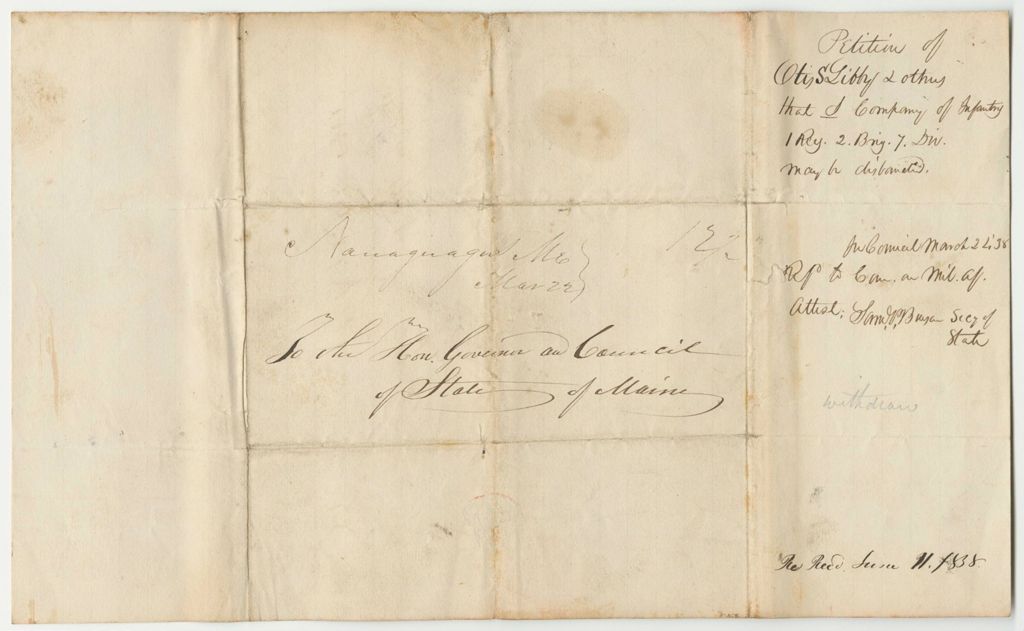 Narraguagus Me
Mar 22
12 1/2
To the Hon. Governor and Council
of State of Maine
Petition of
Otis S Libby & others
that Company of Infantry
1 Reg. 2. Brig. 7. Div.
may be disbanded.
In Council March 24 '38
Refd to Com. on Mil. aff.
Attest, Saml P. Secy of
State
withdraw
Re Recd. June 11. 1838.